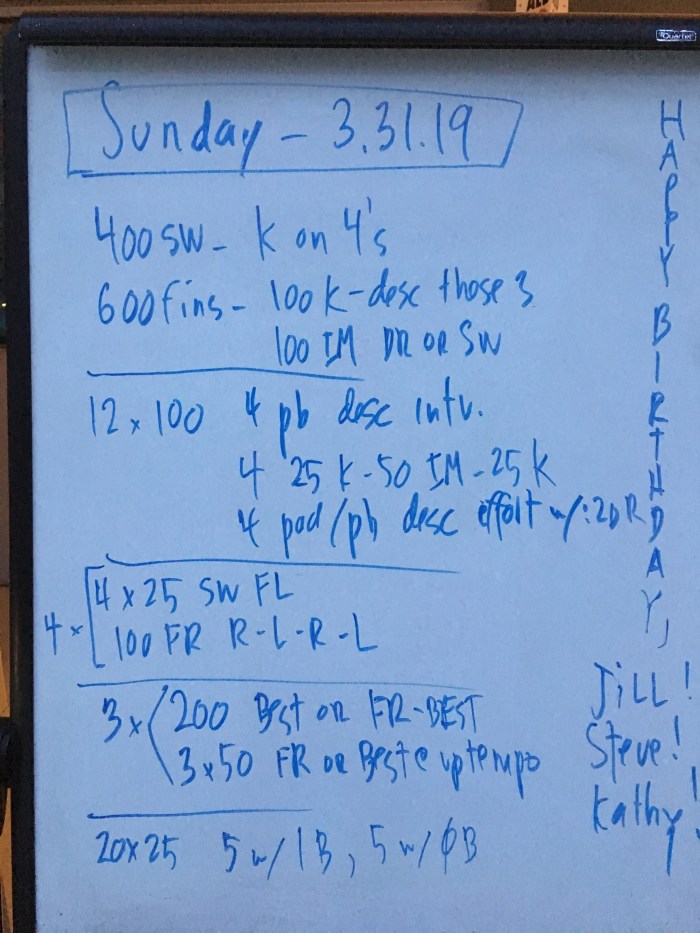 Quartet
Sunday - 3.31.19
400 SW - K on 4's
600 fins - 100 K - desc those 3
100 IM DR OR SW
12 x 100 4 pb desc intv.
4 25 K - 50 IM - 25 K
4 pad/pb desc effort w/ :20 R
4 x 4 x 25 SW FL
100 FR R-L-R-L
3 x 200 Best or FR-BEST
3 x 50 FR or Best @ uptempo
20 x 25 5 w/ 1 B, 5 w/ ØB
HAPPY BIRTHDAY,
JiLL!
Steve!
Kathy!